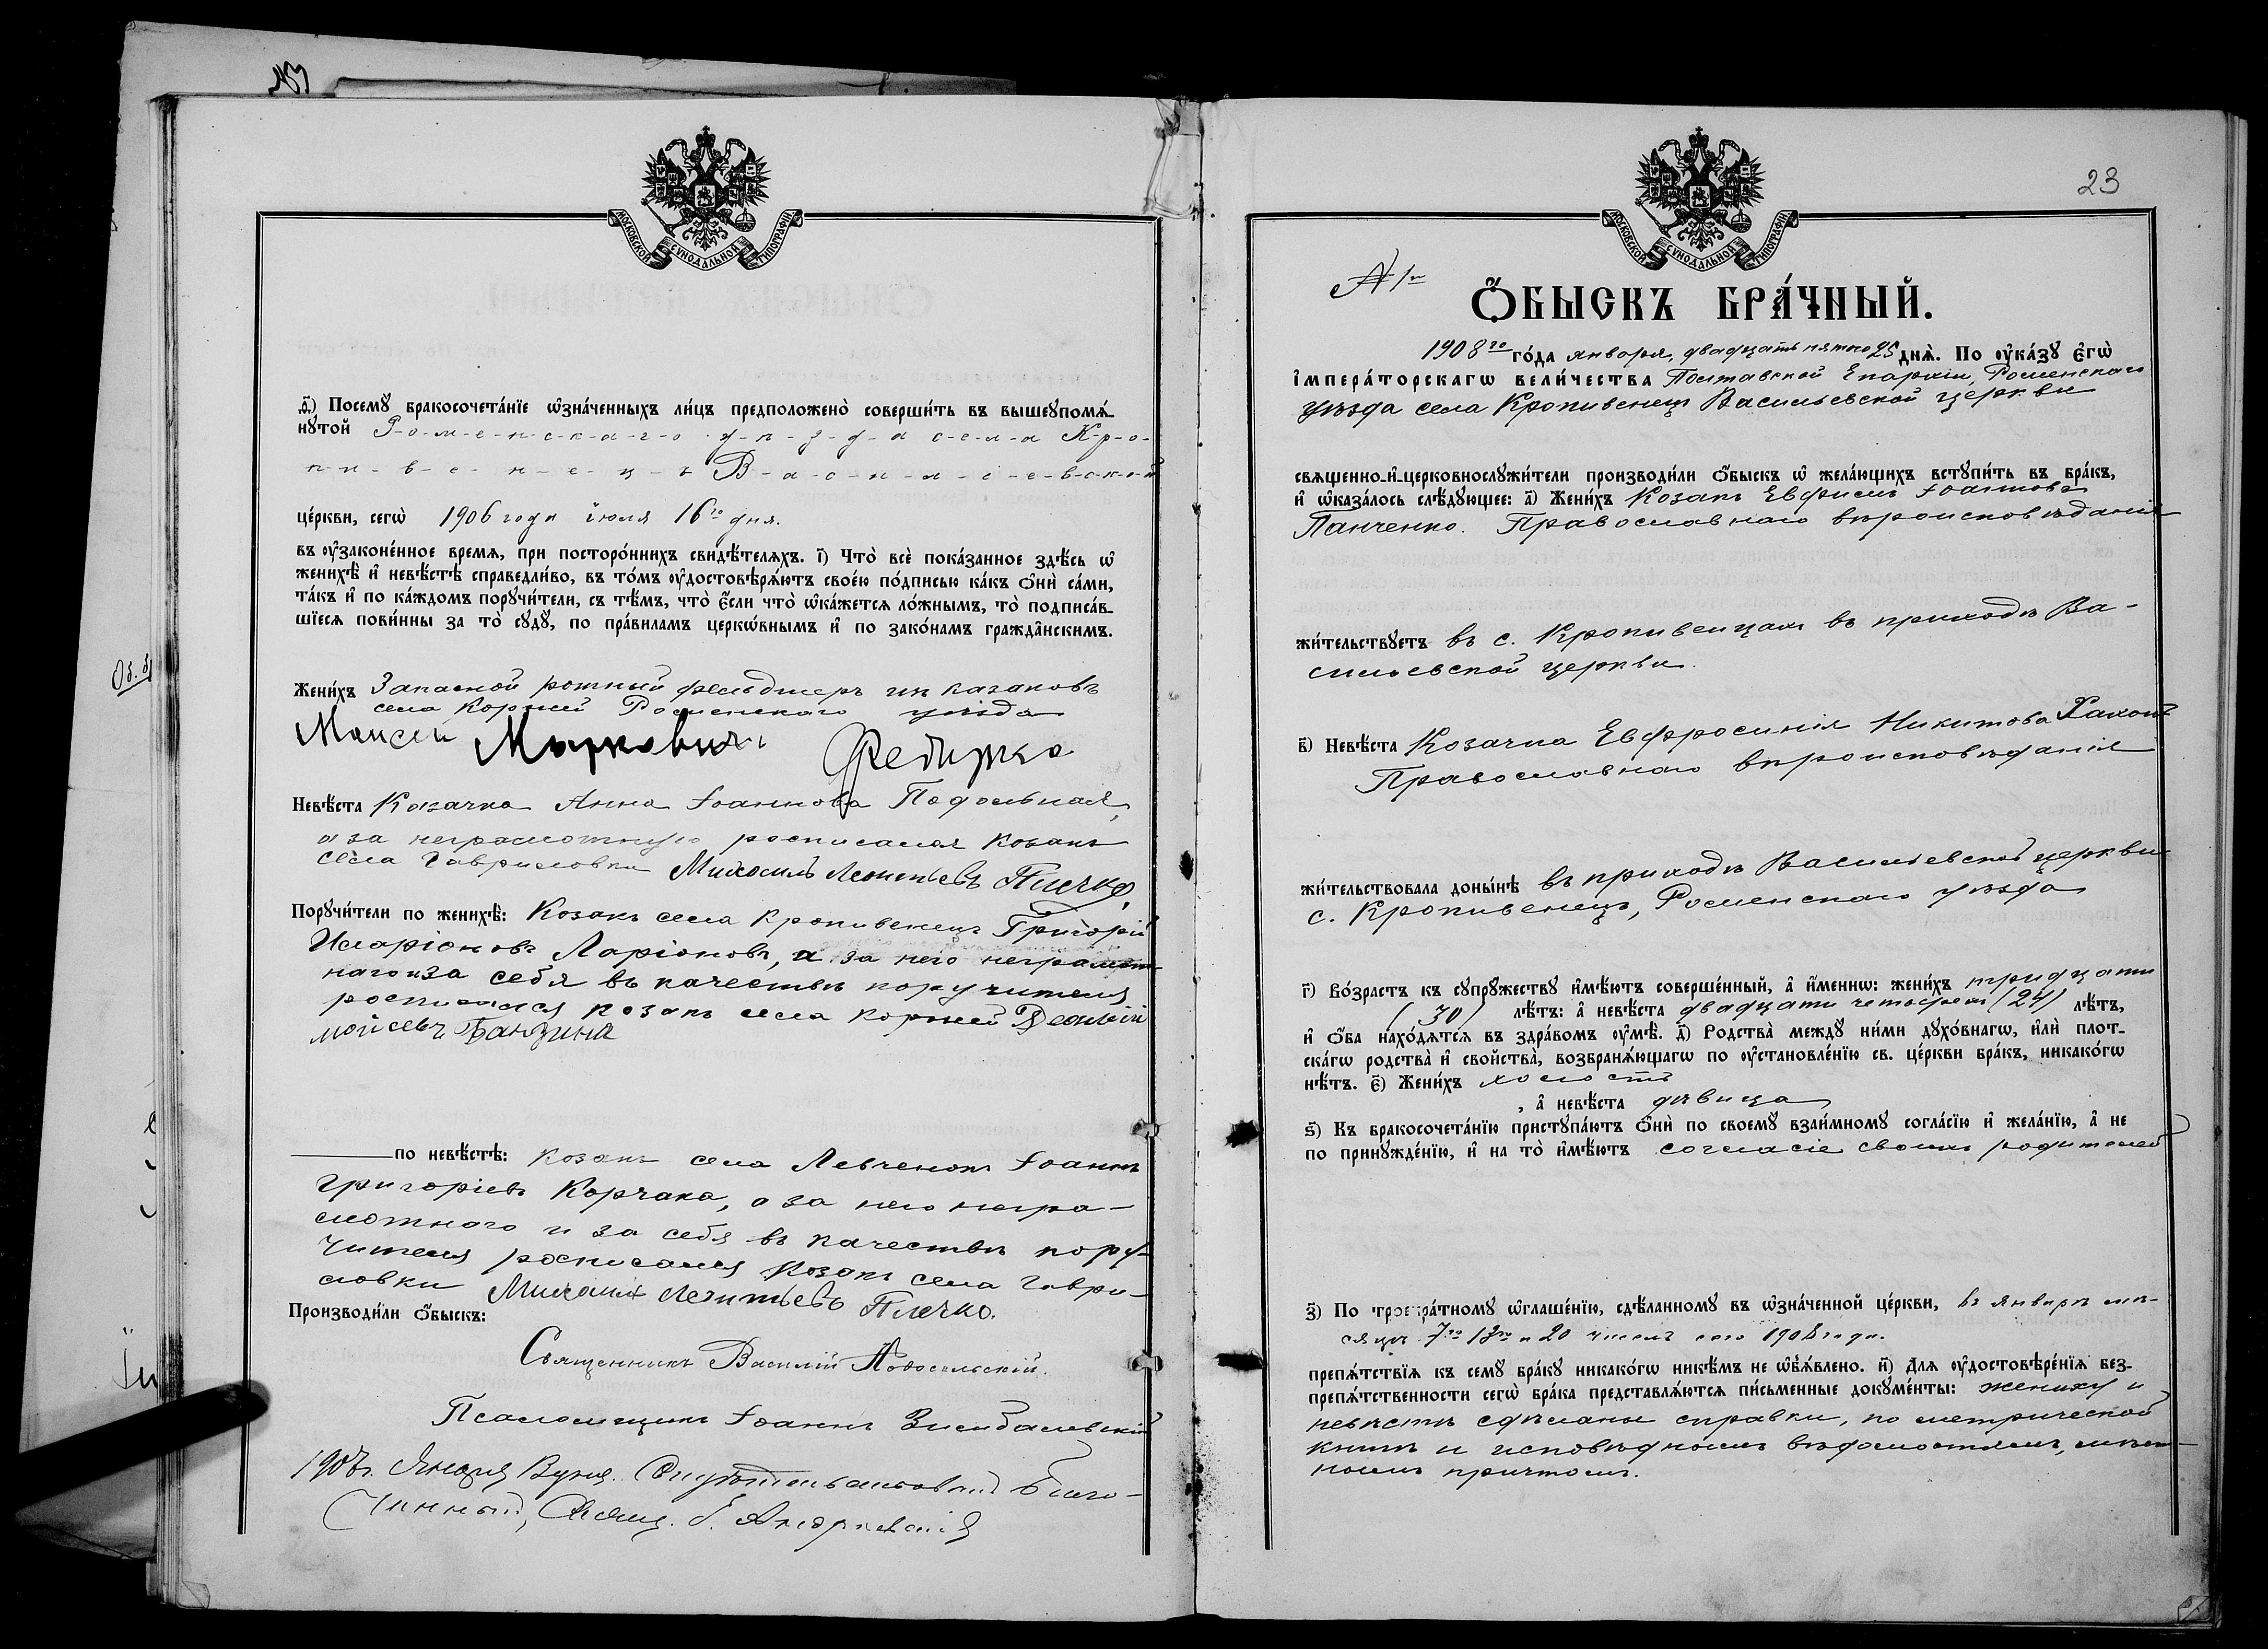 МОСКОВСКОЙ СѴНОДАЛЬНОЙ ТИПОГРАФІИ
ѳ҃) Посемꙋ бракосочета́нїе ѡ҆зна́ченныхъ ли́цъ предположено̀ соверши́ть въ вышеꙋпомѧ́-
нꙋтой Р-о-м-е-н-с-к-а-г-о у-ѣ-з-д-а с-е-л-а К-р-о-
п-и-в-е-н-е-ц-ъ В-а-с-и-л-ь-е-в-с-к-о-й
це́ркви, сегѡ̀ 1906 года іюля 16го дня.
въ ᲂу҆законе́нное времѧ, при посторо́ннихъ свидѣ́телѧхъ. і҃) Что̀ всѐ пока́занное здѣ́сь ѡ҆
женихѣ̀ и҆ невѣ́стѣ справедли́во, въ то́мъ ᲂу҆достовѣрѧ́ютъ свое́ю по́дписью ка́къ ѻ҆нѝ са́ми,
та́къ и҆ по ка́ждомъ порꙋчи́тели, съ тѣ́мъ, что̀ є҆́сли что̀ ѡ҆ка́жетсѧ ло́жнымъ, то̀ подписа́в-
шїесѧ пови́нны за то̀ сꙋдꙋ̀, по пра́виламъ церкѡ́внымъ и҆ по зако́намъ гражда̑нскимъ.
Жени́хъ Запасной ротный фельдшеръ изъ казаковъ
села Коржей Роменскаго уѣзда
Моисей Марковичъ
Невѣ́ста Казачка Анна Іоаннова Подольная,
а за неграмотную росписался козакъ
села Гавриловки Михаилъ Леонтьевъ Пличко
Порꙋчи́тели по женихѣ̀: Козакъ села Кропивенецъ Григорій
Иларіоновъ Ларіоновъ, а за него неграмот-
наго и за себя въ качествѣ поручителя
росписался козакъ села Коржей
Мойсеевъ
по невѣ́стѣ: Козакъ села Левченокъ Іоаннъ
Григоріевъ Корчака, а за него негра-
мотнаго и за себя въ качествѣ пору-
чителя росписался Козакъ села Гаври-
ловки Михаилъ Леонтьевъ Пличко.
Производи́ли ѻ҆́быскъ:
Священникъ Василій Новосельскій.
Псаломщикъ Іоаннъ
1908 г. Января
чинный, Свящ.
23
МОСКОВСКОЙ СѴНОДАЛЬНОЙ ТИПОГРАФІИ
№ 1й
Ѻ҆́БЫСКЪ БРА́ЧНЫЙ.
1908го го́да января, двадцать пятаго 25 днѧ̀. По ᲂу҆ка́зꙋ є҆гѡ̀
і҆мпера́торскагѡ вели́чества Полтавской Епархіи, Роменскаго
уѣзда села Кропивенецъ Васильевской церкви
свѧщенно-и҆-церковнослꙋжи́тели производи́ли ѻ҆́быскъ ѡ҆ жела́ющихъ встꙋпи́ть въ бра́къ,
и҆ ѡ҆каза́лось слѣ́дꙋющее: а҃) Жени́хъ Козакъ Евфимъ Іоанновъ
Панченко. Православнаго вѣроисповѣданія
жи́тельствꙋетъ въ с. Кропивенцахъ въ приходѣ Ва-
сильевской церкви.
в҃) Невѣ́ста Козачка Евфросинія Никитова
Православнаго вѣроисповѣданія
жи́тельствовала доны́нѣ въ приходѣ Васильевской церкви
с. Кропивенецъ, Роменскаго уѣзда
г҃) Во́зрастъ къ сꙋпрꙋ́жествꙋ и҆мѣ́ютъ соверше́нный, а҆ и҆́меннѡ: жени́хъ тридцати
(30) лѣ́тъ: а҆ невѣ́ста двадцати четырехъ (24) лѣ́тъ,
и҆ ѻ҆́ба нахо́дѧтсѧ въ здра́вомъ ᲂу҆мѣ̀. д҃) Родства̀ междꙋ̀ ни́ми дꙋхо́внагѡ, и҆лѝ плот-
ска́гѡ родства̀ и҆ свойства̀, возбранѧ́ющагѡ по ᲂу҆становле́нїю св. це́ркви бра́къ, никако́гѡ
нѣ́тъ. є҃) Жени́хъ холостъ
, а҆ невѣ́ста дѣвица
ѕ҃) Къ бракосочета́нїю пристꙋпа́ютъ ѻ҆нѝ по своемꙋ̀ взаи́мномꙋ согла́сїю и҆ жела́нїю, а҆ не
по принꙋжде́нїю, и҆ на то̀ и҆мѣ́ютъ согласіе своихъ родителей
з҃) По троекра́тномꙋ ѡ҆глаше́нїю, сдѣ́ланномꙋ въ ѡ҆зна́ченной це́ркви, въ январѣ мѣ-
сяцѣ 7го 13го и 20 чиселъ сего 1908 года.
препѧ́тствїѧ къ семꙋ̀ бра́кꙋ никако́гѡ никѣ́мъ не ѡ҆б̾ѧ́влено. и҃) Длѧ ᲂу҆достовѣре́нїѧ без-
препѧ́тственности сегѡ̀ бра́ка представлѧ́ютсѧ пи́сьменные докꙋме́нты: жениху и
невѣстѣ сдѣланы справки, по метрической
книгѣ и исповѣднымъ вѣдомостямъ, мѣст-
нымъ причтомъ.